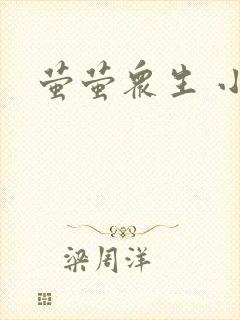 萤萤众生 小
梁周洋